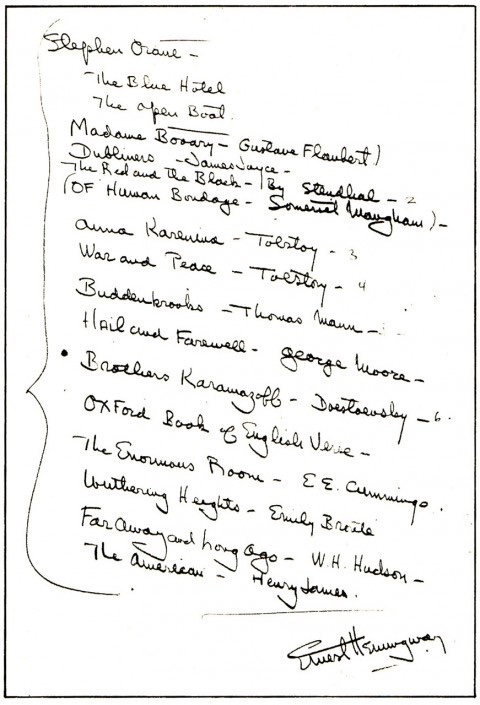 Stephen Crane -
The Blue Hotel
The Open Boat
Madame Bovary - Gustave Flaubert)
Dubliners - James Joyce -
The Red and the Black - By Stendhal - 2
(OF Human Bondage - Somerset Maugham) -
Anna Karenina - Tolstoy - 3
War and Peace - Tolstoy - 4
Buddenbrooks - Thomas Mann -
Hail and Farewell - George Moore -
Brothers Karamazoff - Doestoevsky - 6.
OXFord Book of English Verse -
The Enormous Room - E.E. Cummings.
Wuthering Heights - Emily Bronte
Far Away and Long Ago - W.H. Hudson -
The American - Henry James.
Ernest Hemingway